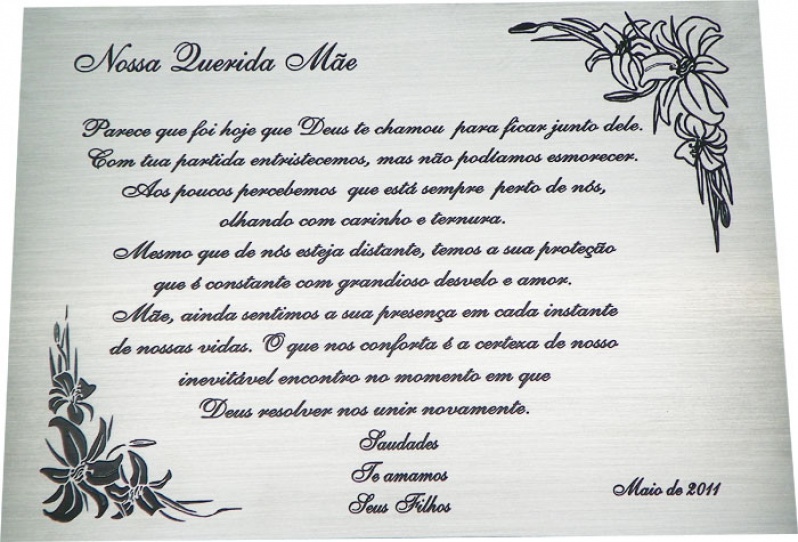 Nossa Querida Mãe
Parece que foi hoje que Deus te chamou para ficar junto dele.
Com tua partida entristecemos, mas não podíamos esmorecer.
Aos poucos percebemos que está sempre perto de nós,
olhando com carinho e ternura.
Mesmo que de nós esteja distante, temos a sua proteção
que é constante com grandioso desvelo e amor.
Mãe, ainda sentimos a sua presença em cada instante
de nossas vidas. O que nos conforta é a certeza de nosso
inevitável encontro no momento em que
Deus resolver nos unir novamente.
Saudades
Te amamos
Seus Filhos
Maio de 2011